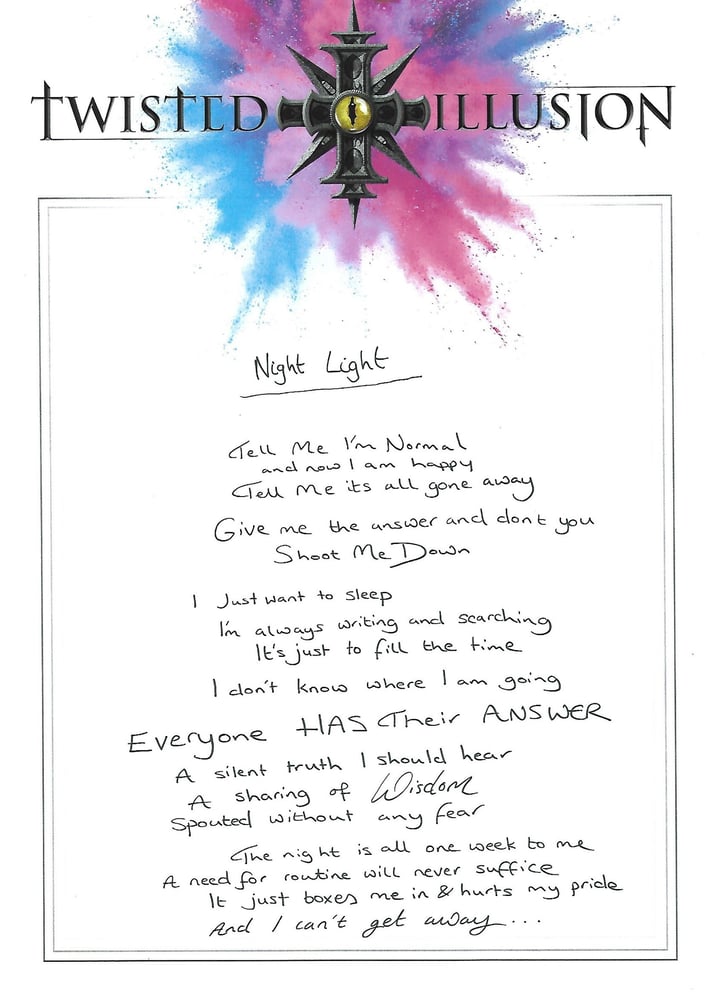 TWISTED ILLUSION
Night Light
Tell Me I'm Normal
and now I am happy
Tell Me its all gone away
Give me the answer and dont you
Shoot Me Down
I Just want to sleep
I'm always writing and searching
It's just to fill the time
I don't know where I am going
Everyone HAS Their ANSWER
A silent truth I should hear
A sharing of Wisdom
Spouted without any fear
The night is all one week to me
A need for routine will never suffice
It just boxes me in & hurts my pride
And I can't get away...